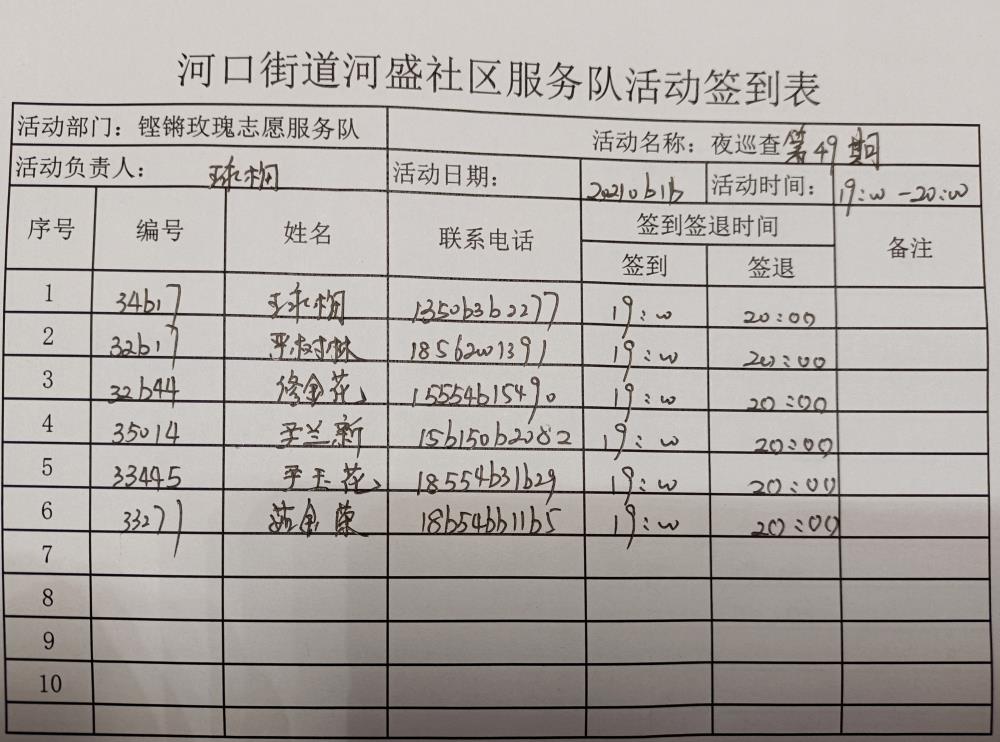 河口街道河盛社区服务队活动签到表
活动部门：铿锵玫瑰志愿服务队 活动名称：夜巡查第49期
活动负责人： 活动日期： 20210616 活动时间： 19:00-20:00
序号 编号 姓名 联系电话 签到签退时间 备注
签到 签退
1 34617 13506362277 19:00 20:00
2 32617 18562001391 19:00 20:00
3 32644 修金花 15554615490 19:00 20:00
4 35014 辛兰新 15615062082 19:00 20:00
5 33445 玉花 18554631629 19:00 20:00
6 33271 18654661165 19:00 20:00
7
8
9
10